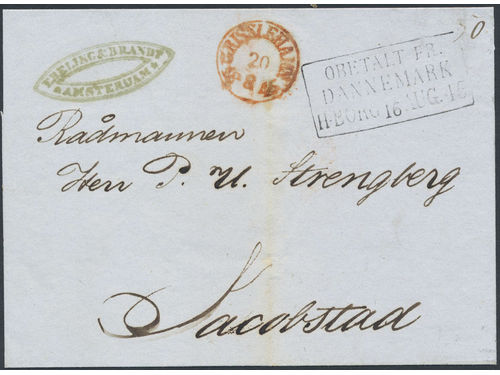 EBELING & BRANDT
AMSTERDAM
GRISSLEHAMN
20
8
OBETALT FR.
DANNEMARK
H-BORG 16 AUG.
Rådmannen
Herr P. U. Strengberg
Jacobstad